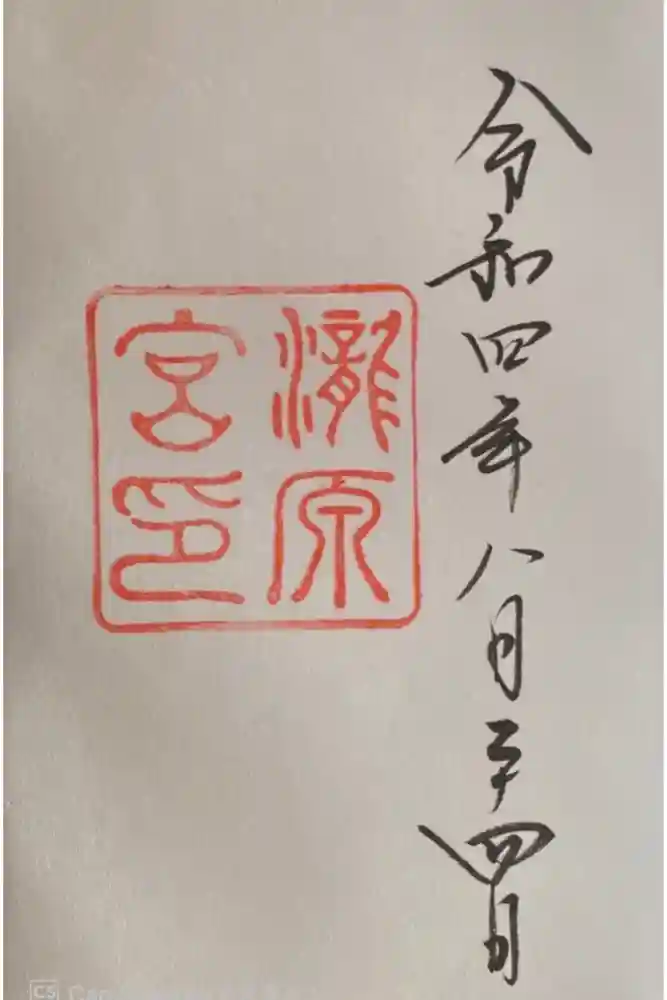 令和四年八月二十四日
瀧原
宮印
CS